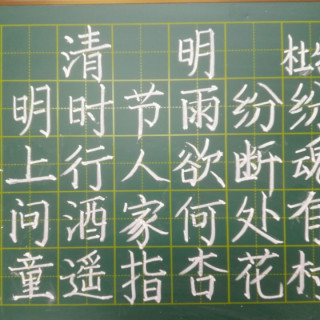 清明 杜
明时节雨纷纷
上行人欲断魂
问酒家何处有
童遥指杏花村